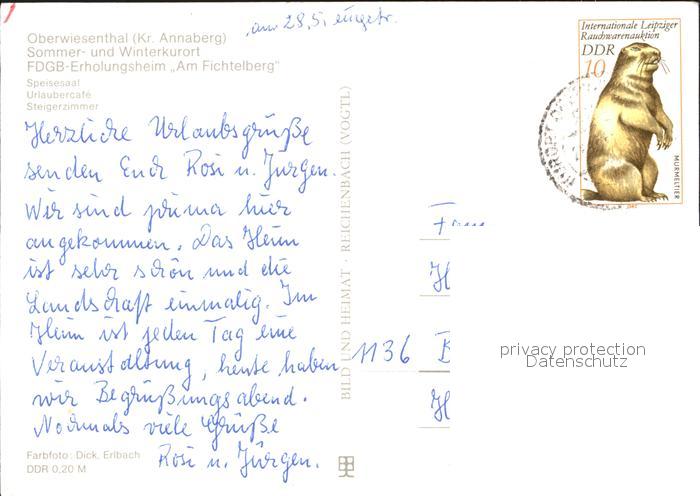 am 28.5. eingetr.
Oberwiesenthal (Kr. Annaberg)
Sommer- und Winterkurort
FDGB-Erholungsheim „Am Fichtelberg"
Speisesaal
Urlaubercafé
Steigerzimmer
Herzliche Urlaubsgrüße
senden Euch Rosi u. Jürgen.
Wir sind prima hier
angekommen. Das Heim
ist sehr schön und die
Landschaft einmalig. Im
Heim ist jeden Tag eine
Veranstaltung, heute haben
wir Begrüßungsabend.
Nochmals viele Grüße
Rosi u. Jürgen.
Farbfoto: Dick, Erlbach
DDR 0,20 M
BILD UND HEIMAT · REICHENBACH (VOGTL)
Internationale Leipziger
Rauchwarenauktion
DDR
10
MURMELTIER
1982
Fam
H
1136 B
H
privacy protection
Datenschutz